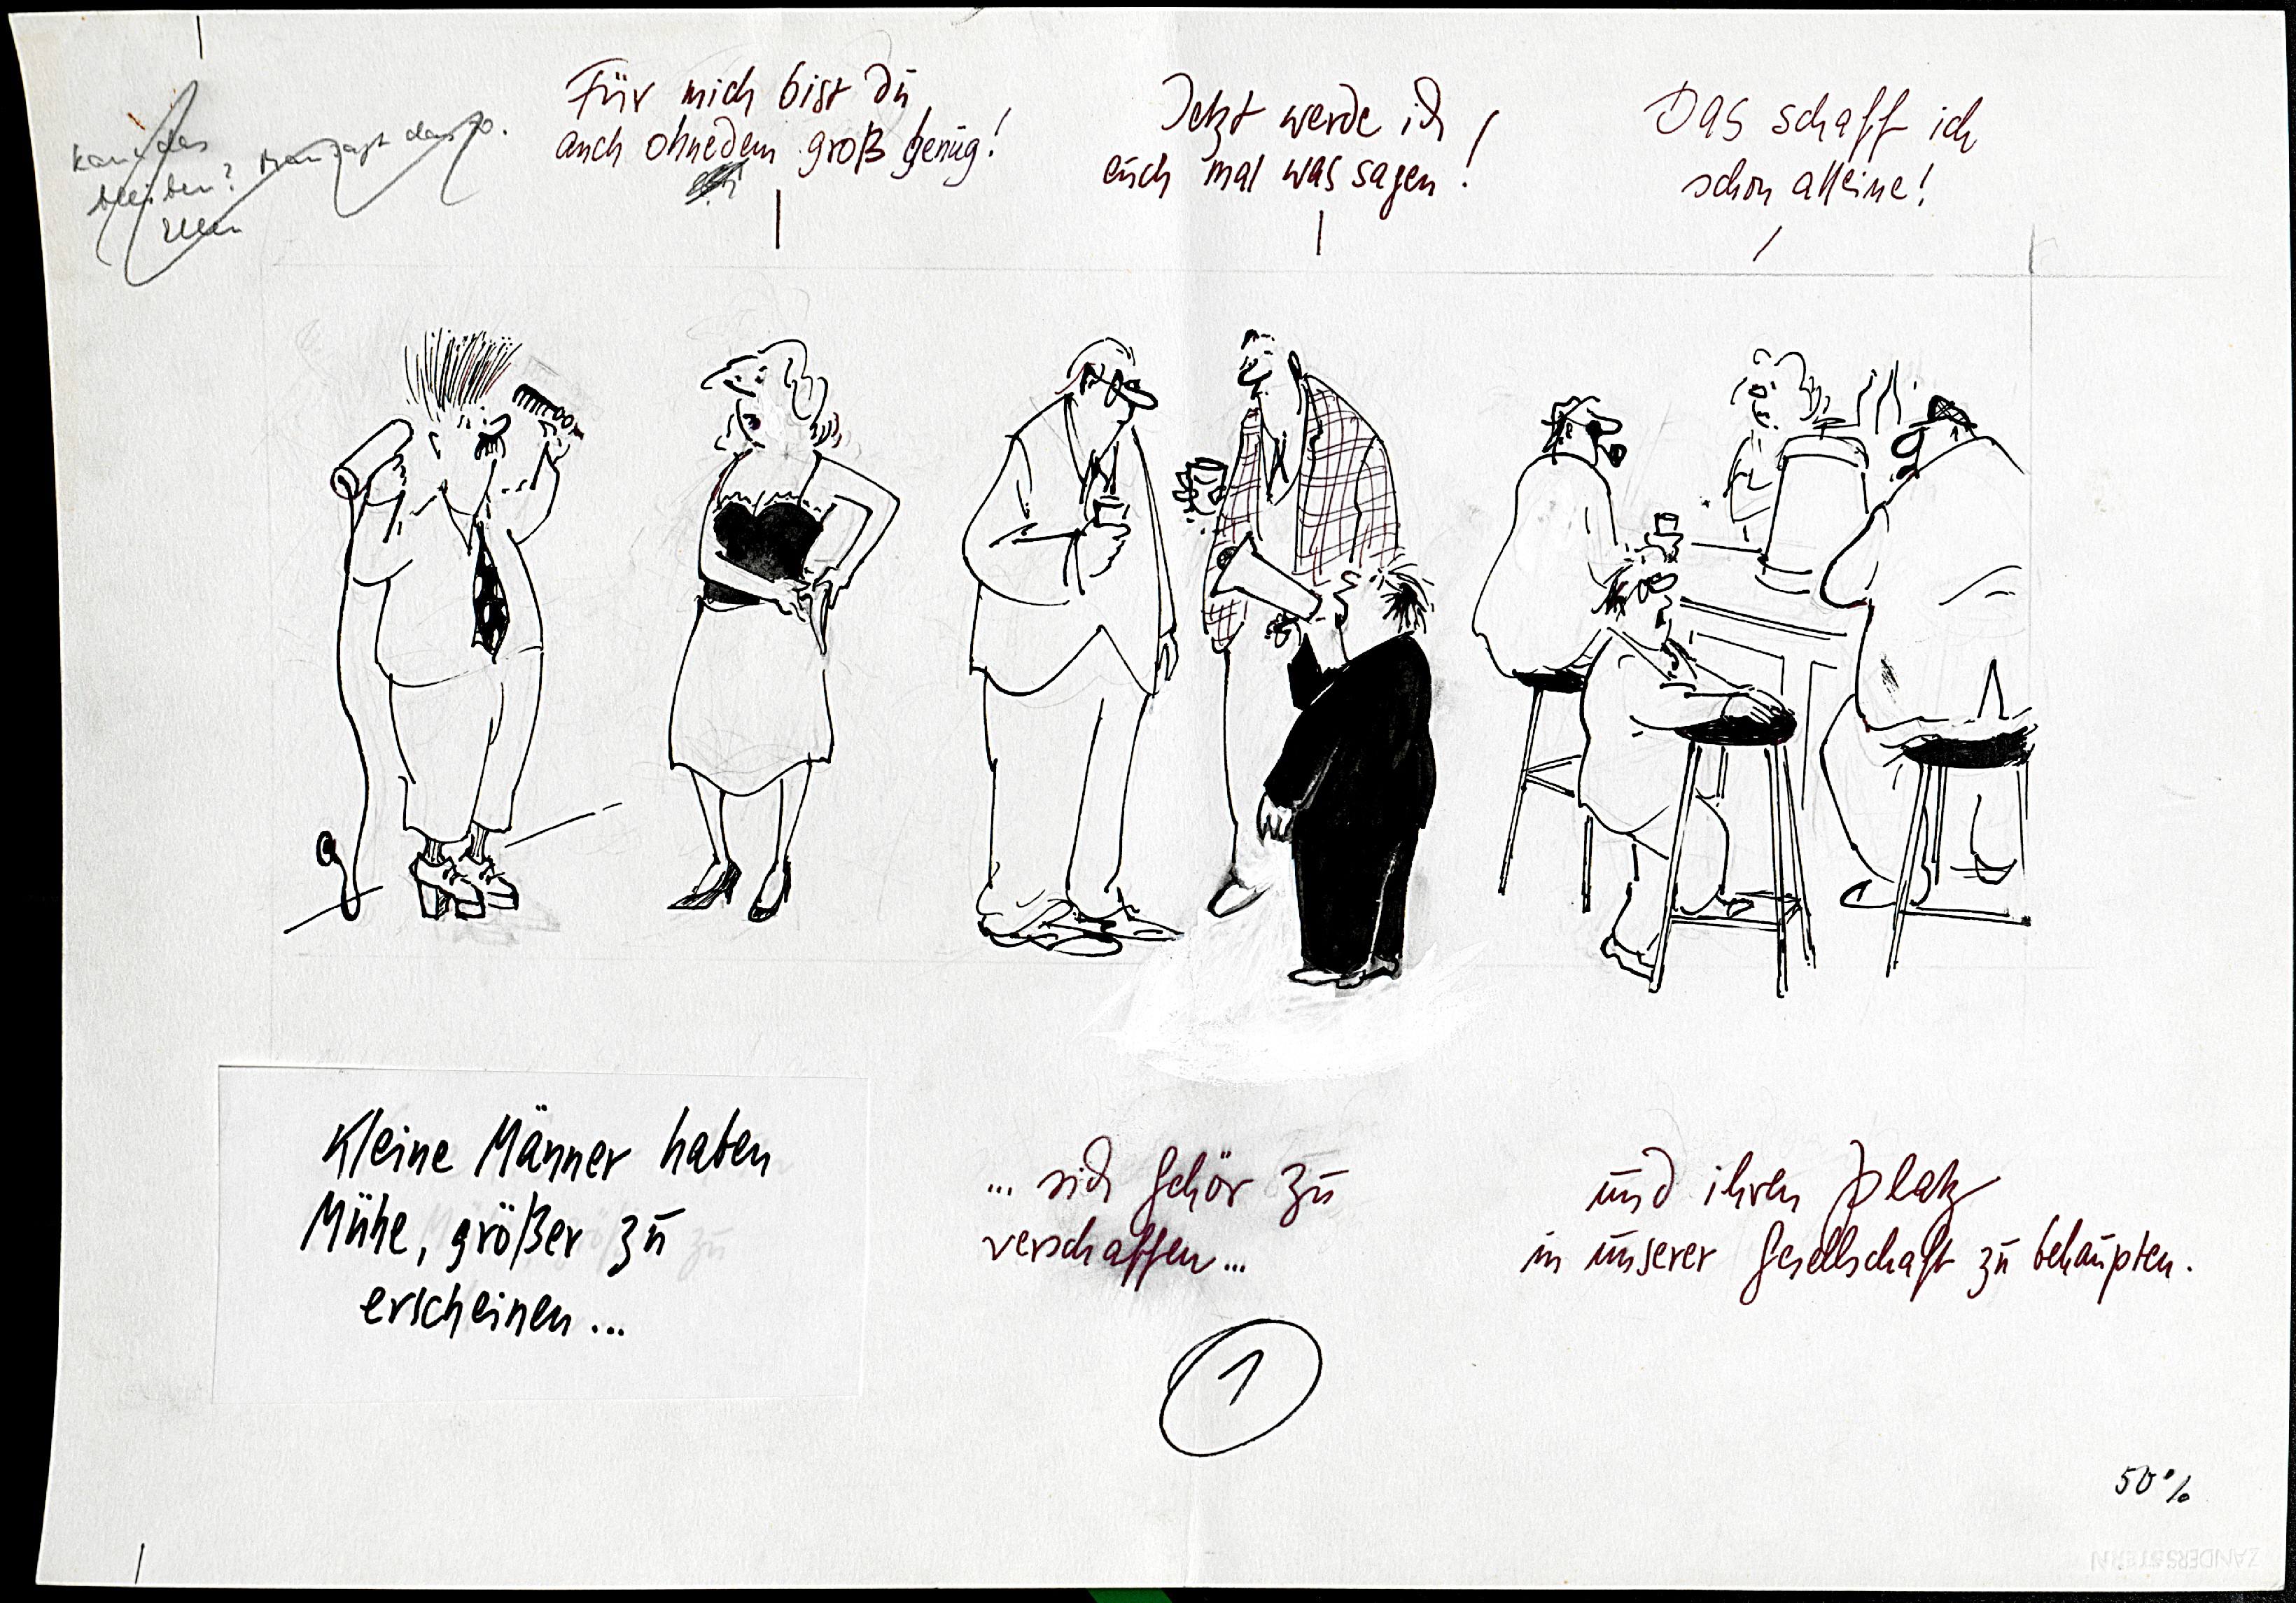 kann das
bleiben? Man sagt das so.
Für mich bist du
auch ohnedem groß genug!
Jetzt werde ich
euch mal was sagen!
Das schaff ich
schon alleine!
Kleine Männer haben
Mühe, größer zu
erscheinen...
... sich Gehör zu
verschaffen...
und ihren Platz
in unserer Gesellschaft zu behaupten.
1
50%
ZANDERS